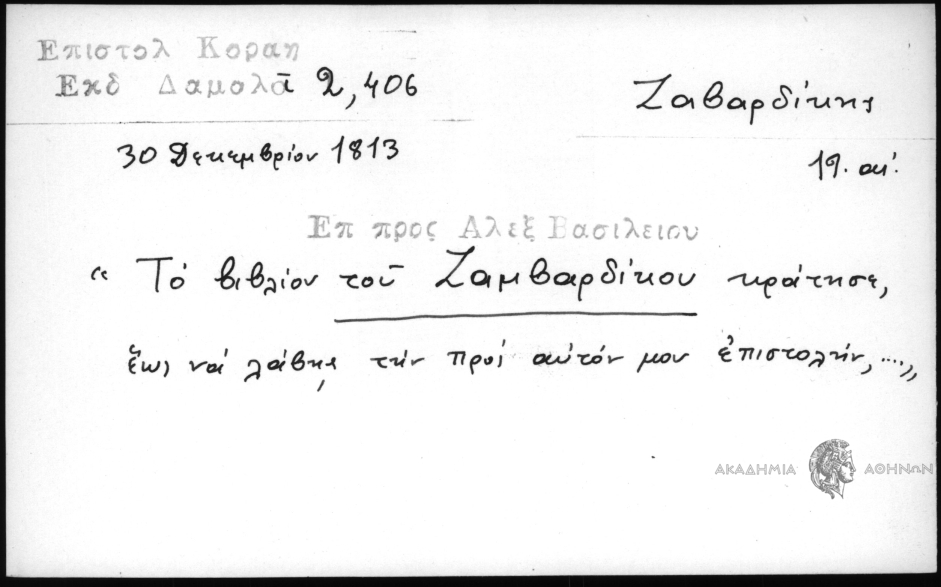 Επιστολ Κοραη
Εκδ Δαμαλᾶ 2,406
Ζαβαρδίκης
30 Δεκεμβρίου 1813
19. αἰ.
Επ προς Αλεξ Βασιλειου
“ Τό βιβλίον τοῦ Ζαμβαρδίκου κράτησε,
ἕως νά λάβῃς τήν πρός αὐτόν μου ἐπιστολήν,....,,
ΑΚΑΔΗΜΙΑ ΑΘΗΝΩΝ